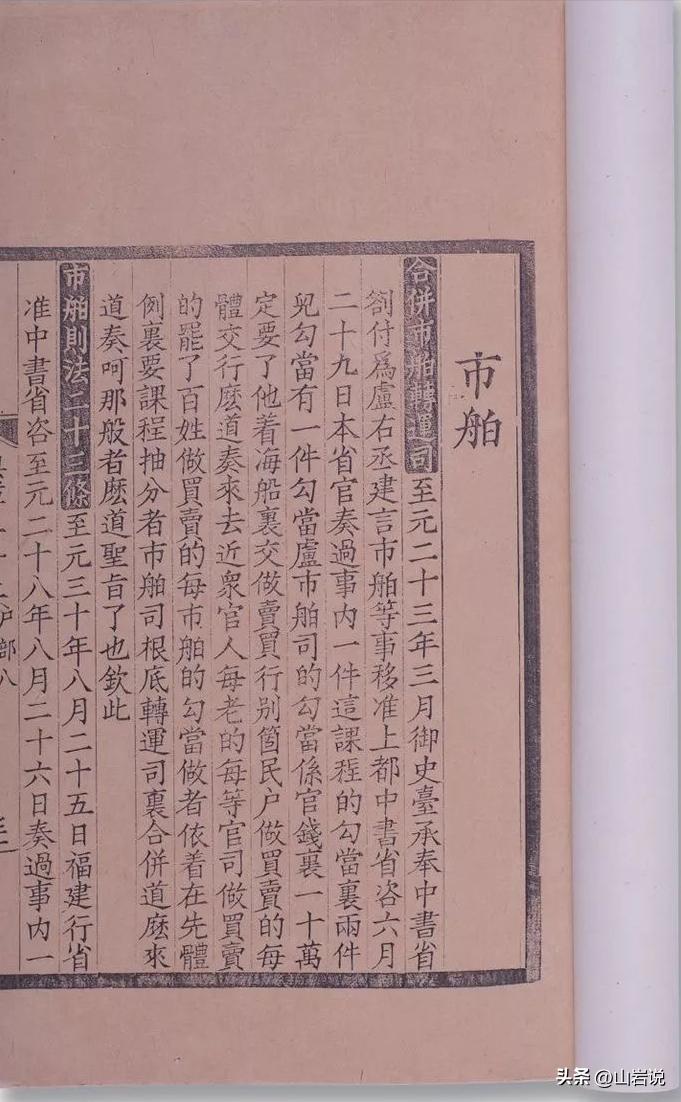 市舶
合併市舶轉運司至元二十三年三月御史臺承奉中書省
劄付爲盧右丞建言市舶等事移准上都中書省咨六月
二十九日本省官奏過事内一件這課程的勾當裏兩件
兒勾當有一件勾當盧市舶司的勾當係官錢裏一十萬
定要了他着海船裏交做賣買行别箇民户做買賣的每
體交行麽道奏來去近衆官人每老的每等官司做買賣
的罷了百姓做買賣的每市舶的勾當做者依着在先體
例裏要課程抽分者市舶司根底轉運司裏合併道麽來
道奏呵那般者麽道聖旨了也欽此
市舶則法二十三條至元三十年八月二十五日福建行省
准中書省咨至元二十八年八月二十六日奏過事内一
户部八
头条 @山岩说